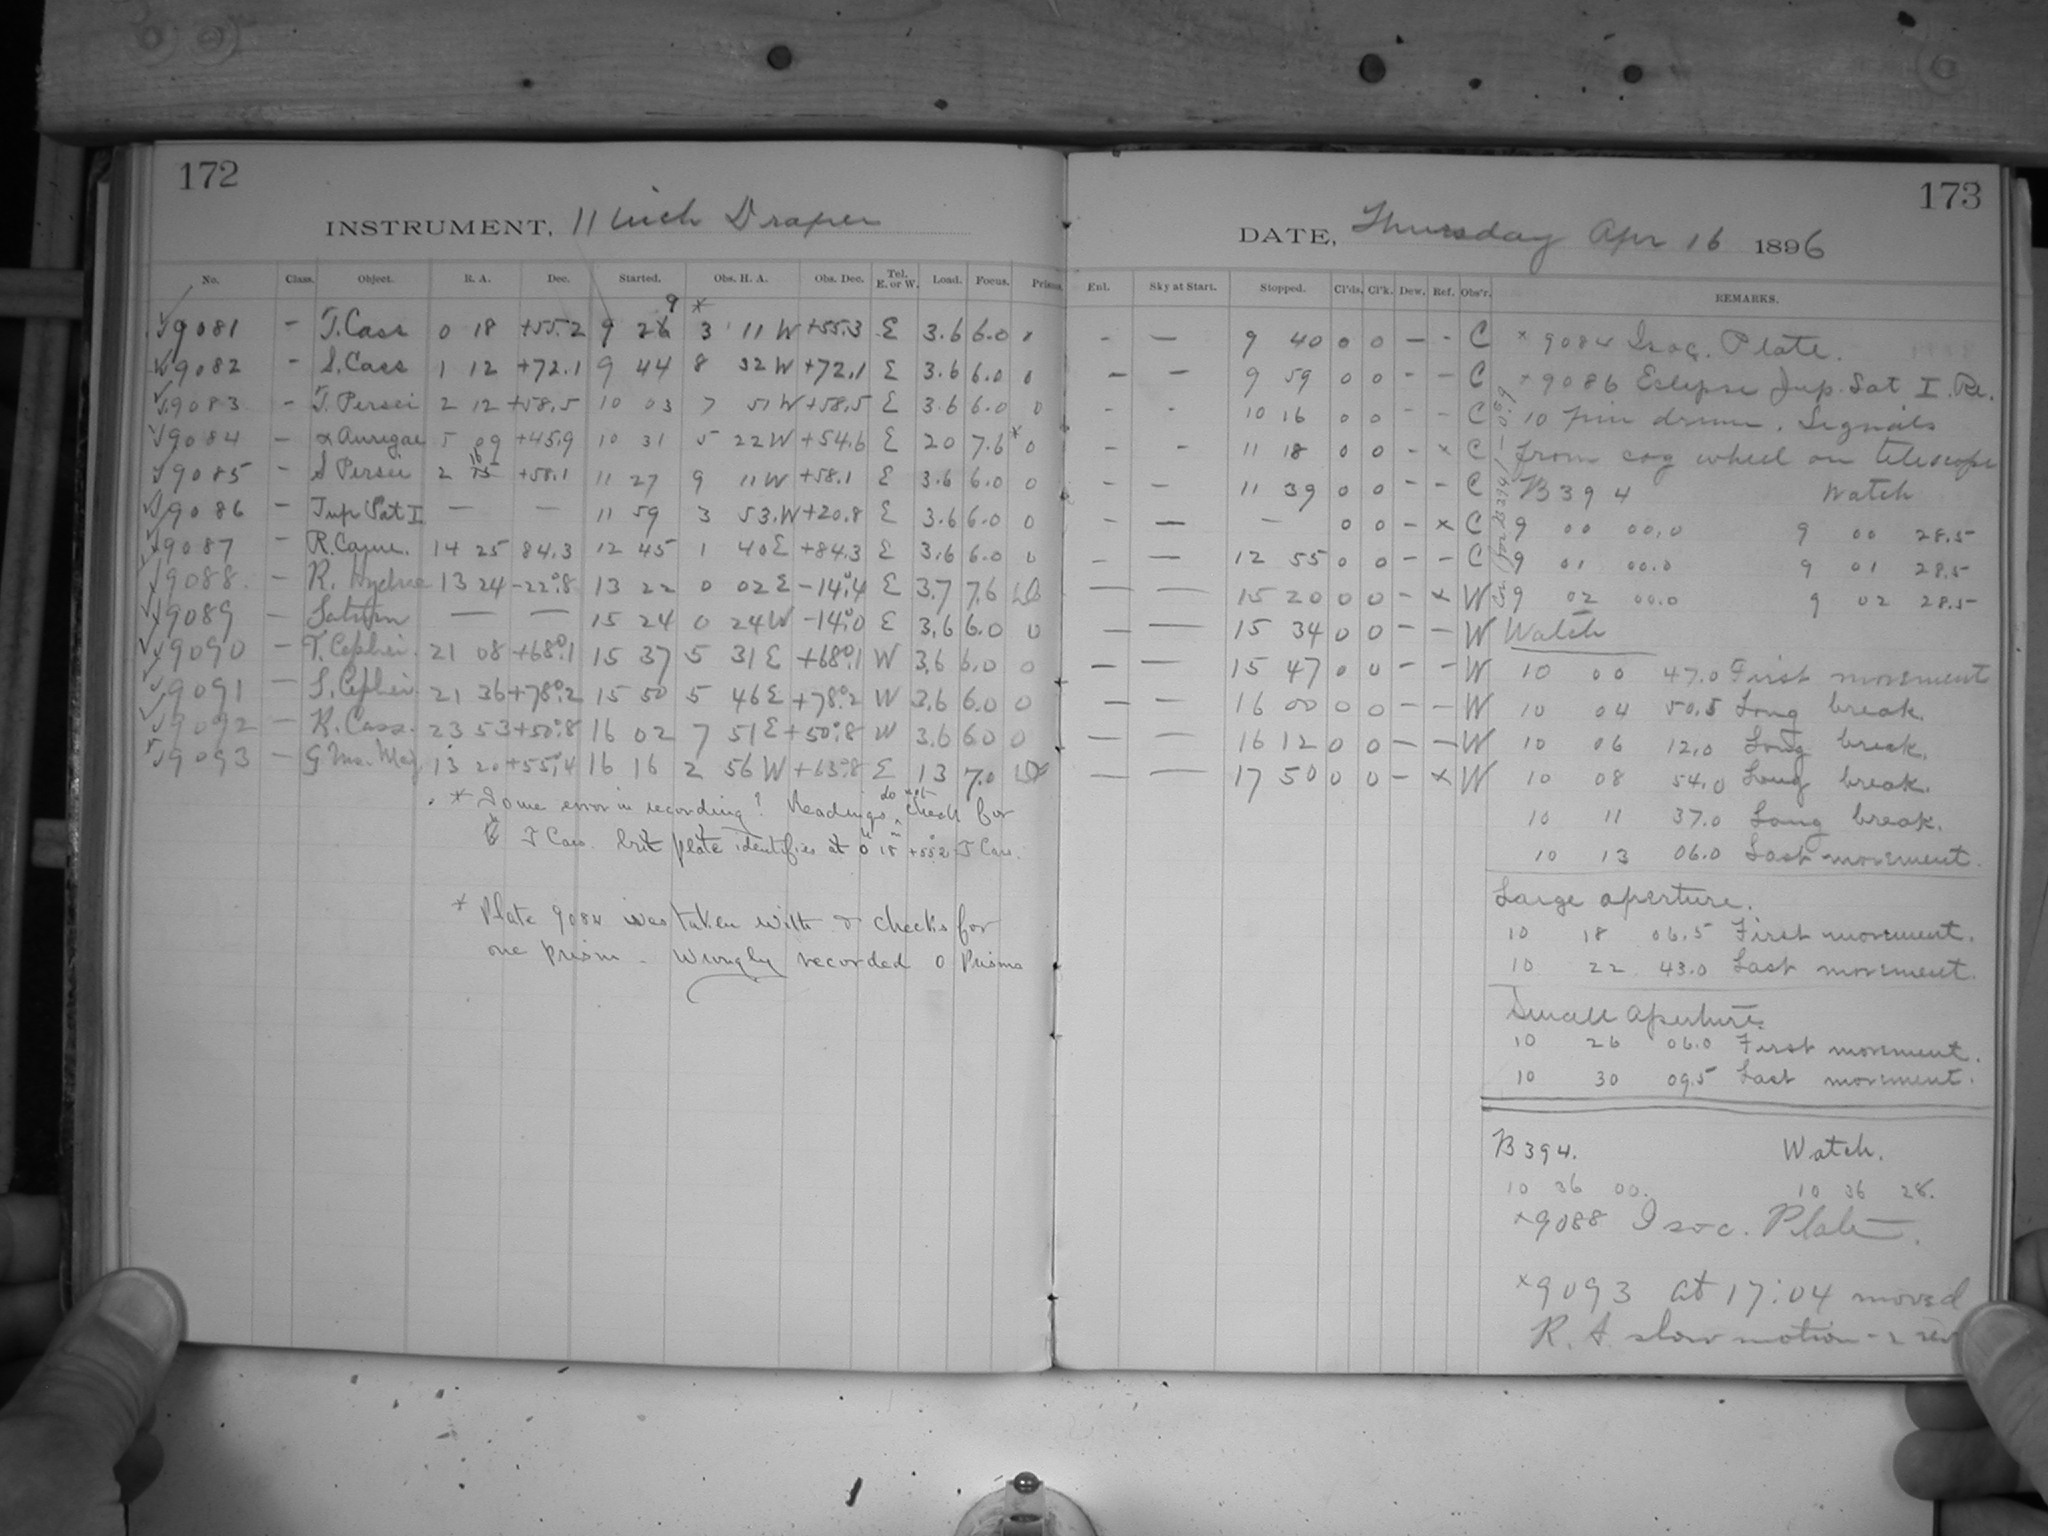 172
INSTRUMENT, 11 inch Draper
No. Class. Object. R. A. Dec. Started. Obs. H. A. Obs. Dec. Tel. E. or W. Load. Focus. Prisms
J9081 – T. Cass 0 18 +55.2 9 26 9 * 3 11 W +55.3 E 3.6 6.0
J9082 – S. Cass 1 12 +72.1 9 44 8 32 W +72.1 E 3.6 6.0 0
J9083 – T. Persei 2 12 +58.5 10 03 7 51 W +58.5 E 3.6 6.0 0
J9084 – α Aurigae 5 09 +45.9 10 31 5 22 W +54.6 E 20 7.6 * 0
J9085 – S Persei 2 15 16 +58.1 11 27 9 11 W +58.1 E 3.6 6.0 0
J9086 – Jup Sat I — — 11 59 3 53 W +20.8 E 3.6 6.0 0
J9087 – R. Came. 14 25 84.3 12 45 1 40 E +84.3 E 3.6 6.0 0
J9088 – R. Hydrae 13 24 -22°.8 13 22 0 02 E -14°.4 E 3.7 7.6
J9089 – Saturn — — 15 24 0 24 W -14°.0 E 3.6 6.0 0
J9090 – T. Cephei. 21 08 +68°.1 15 37 5 31 E +68°.1 W 3.6 6.0 0
J9091 – S. Cephei 21 36 +78°.2 15 50 5 46 E +78°.2 W 3.6 6.0 0
J9092 – R. Cass. 23 53 +50°.8 16 02 7 51 E +50°.8 W 3.6 6.0 0
J9093 – G Ma. Maj 13 20 +55°.4 16 16 2 56 W +63°.8 E 13 7.0
* Some error in recording? Readings do not check for
T Cass. but plate identifies at 0h 18m +55°.2 T Cass.
* Plate 9084 was taken with & checks for
one prism – Wrongly recorded 0 Prisms
173
DATE, Thursday Apr 16 1896
Enl. Sky at Start. Stopped. Cl'ds. Cl'k. Dew. Ref. Obs'r. REMARKS.
– — 9 40 0 0 – – C × 9084 Isoc. Plate.
– – 9 59 0 0 – – C × 9086 Eclipse Jup. Sat I. Re.
– – 10 16 0 0 – – C 10 pin drum. Signals
– – 11 18 0 0 – × C from cog wheel on telescope
– – 11 39 0 0 – – C B394 Watch
– — — 0 0 – × C 9 00 00.0 9 00 28.5
– — 12 55 0 0 – – C 9 01 00.0 9 01 28.5
— — 15 20 0 0 – × W 9 02 00.0 9 02 28.5
— — 15 34 0 0 – – W Watch
— — 15 47 0 0 – – W 10 00 47.0 First movement
— — 16 00 0 0 – – W 10 04 50.5 Long break.
— — 16 12 0 0 – – W 10 06 12.0 Long break.
— — 17 50 0 0 – × W 10 08 54.0 Long break.
10 11 37.0 Long break.
10 13 06.0 Last movement.
Large aperture.
10 18 06.5 First movement.
10 22 43.0 Last movement.
Small Aperture.
10 26 06.0 First movement.
10 30 09.5 Last movement.
B394. Watch.
10 36 00. 10 36 28.
×9088 Isoc. Plate.
×9093 at 17:04 moved
R. A slow motion – 2 rev